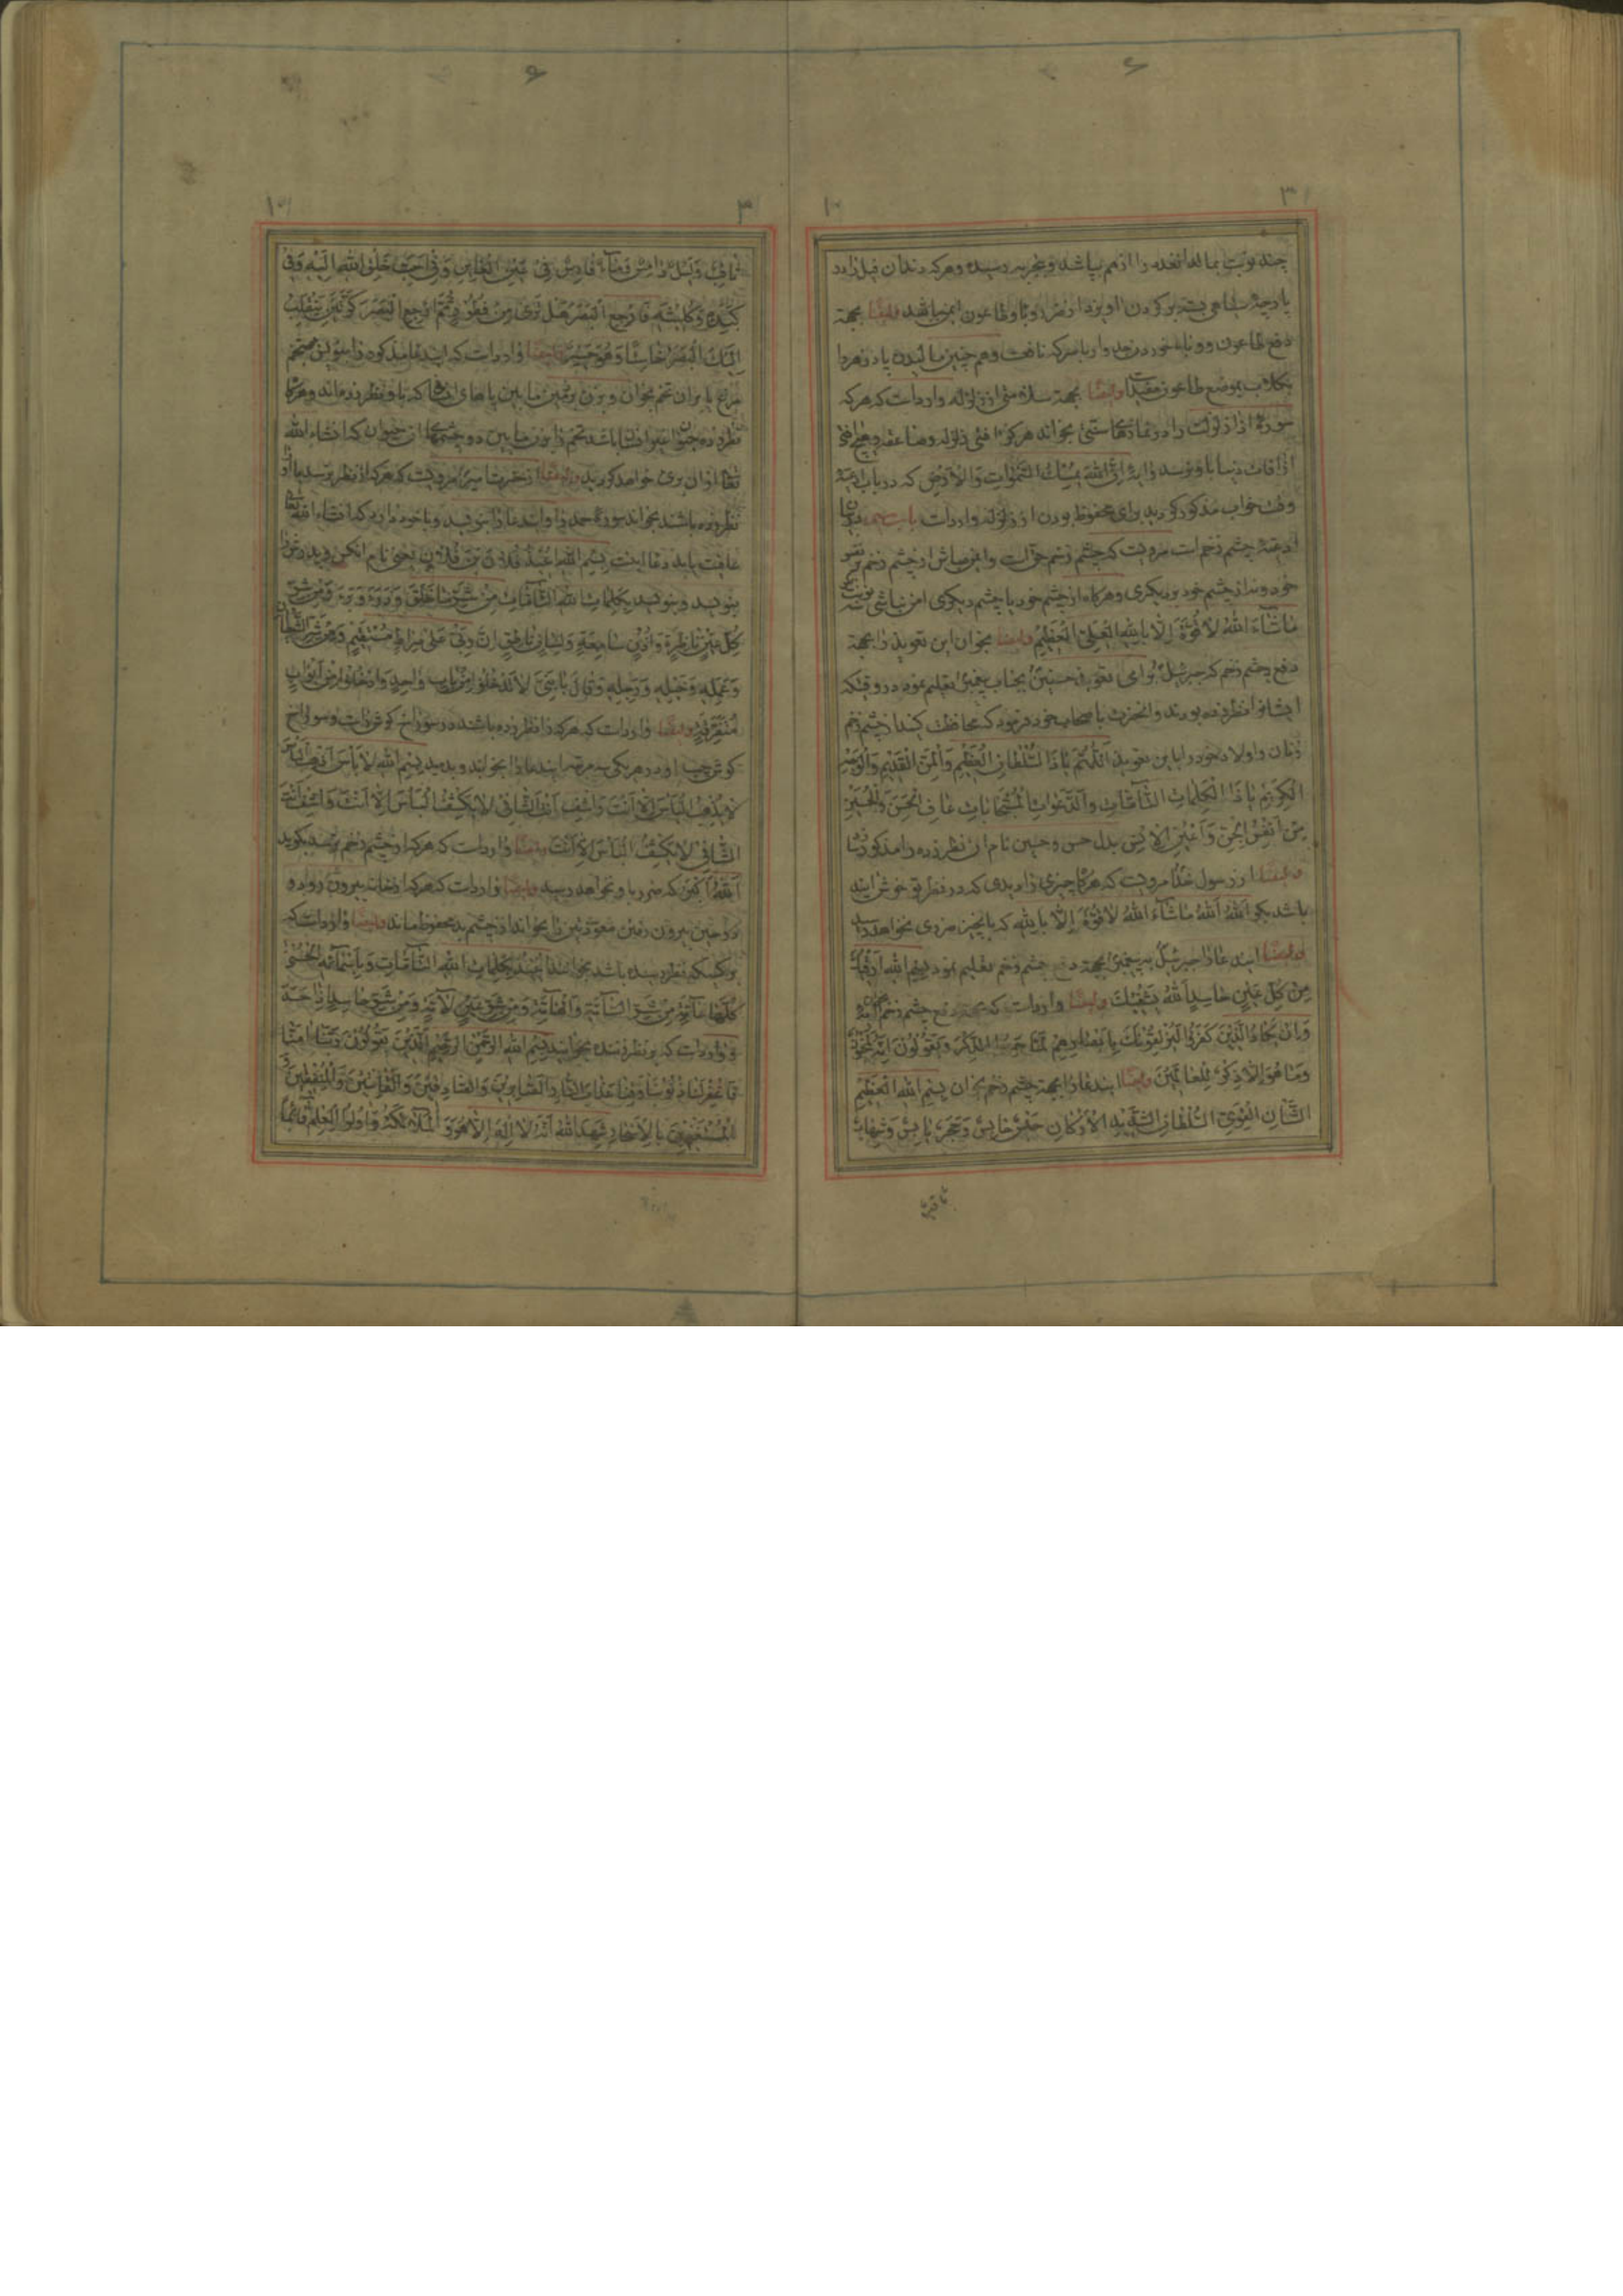 ۶
۳
چند نوبت بمالد انغده را از هم بپاشد و بتجربه رسیده و هرکه دندان فیل را در
پارچهٔ بسته بر کردن اویزد از وبا و طاعون ایمن باشد وایضا بجهة
دفع طاعون و وبا خوردن جدوار با سرکه نافعست و هم چنین مالیدن پادزهر با
بکلاب بموضع طاعون مفیدست وایضا بجهة سلامتی از زلزله وارداست که هرکه
سورهٔ اذا زلزلت را در نمازهای سنتی بخواند هرکز افتی زلزله و صاعقه و هیچ افتی
از آفات دنیا باو نرسد و ایهٔ اِنَّ اللّٰهَ یُمْسِكُ السَّمٰوٰاتِ وَالْاَرْضَ که در باب ادعیهٔ
وقت خواب مذکور کردید برای محفوظ بودن از زلزله وارداست باب سی در بیان
ادعیهٔ چشم زخم است مرویست که چشم زخم حق است و ایمن مباش از چشم زخم بر نفس
خود و نه از چشم خود بر دیکری و هرکاه از چشم خود یا چشم دیکری ایمن نباشی سه نوبت بکو
مٰاشٰآءَ اللّٰهُ لاٰ قُوَّةَ اِلّٰا بِاللّٰهِ الْعَلِیِّ الْعَظیٖمِ وایضا بخوان این تعویذ را بجهة
دفع چشم زخم که جبرئیل برای تعویذ حسنین بجناب پیغمبر تعلیم نمود در وقتیکه
ایشانرا نظر زده بودند و انحضرت باصحاب خود فرمود که محافظت کنید از چشم زخم
زنان و اولاد خود را باین تعویذ اَللّٰهُمَّ یٰا ذَا السُّلْطٰانِ الْعَظیٖمِ وَالْمَنِّ الْقَدیٖمِ وَالْوَجْهِ
الْکَریٖمِ یٰا ذَا الْکَلِمٰاتِ التّٰآمّٰاتِ وَالدَّعَوٰاتِ الْمُسْتَجٰابٰاتِ عٰافِ الْحَسَنَ وَالْحُسَیْنَ
مِنْ اَنْفُسِ الْجِنِّ وَاَعْیُنِ الْاِنْسِ بدل حسن و حسین نام ان نظر زده را مذکور نما
وایضا از رسول خدا مرویست که هرکاه چیزی را دیدی که در نظر تو خوش ایند
باشد بکو اَللّٰهُ اَللّٰهُ مٰاشٰآءَ اللّٰهُ لاٰ قُوَّةَ اِلّٰا بِاللّٰهِ که بانچیز ضرری نخواهد رسید
وایضا این دعا را جبرئیل به پیغمبر بجهة دفع چشم زخم تعلیم نمود بِسْمِ اللّٰهِ اَرْقیٖكَ
مِنْ کُلِّ عَیْنِ حٰاسِدٍ اَللّٰهُ یَشْفیٖكَ وایضا وارداست که بجهة دفع چشم زخم بخوان
وَاِنْ یَکٰادُ الَّذیٖنَ کَفَرُوا لَیُزْلِقُونَكَ بِاَبْصٰارِهِمْ لَمّٰا سَمِعُوا الذِّکْرَ وَیَقُولُونَ اِنَّهُ لَمَجْنُونٌ
وَمٰا هُوَ اِلّٰا ذِکْرٌ لِلْعٰالَمیٖنَ وایضا این دعا را بجهة چشم زخم بخوان بِسْمِ اللّٰهِ الْعَظیٖمِ
الشَّانِ الْقَوِیِّ السُّلْطٰانِ الشَّدیٖدِ الْاَرْکٰانِ حَبْسٌ حٰابِسٌ وَحَجَرٌ یٰابِسٌ وَشِهٰابٌ
۶
۳
ثٰاقِبٌ وَلَیْلٌ دٰامِسٌ وَمٰآءٌ قٰارِسٌ فیٖ عَیْنِ الْعٰاینِ وَفیٖ اَحَبِّ خَلْقِ اللّٰهِ اِلَیْهِ وَفیٖ
کَبِدِهٖ وَکُلْیَتَیْهِ فَارْجِعِ الْبَصَرَ هَلْ تَرٰی مِنْ فُطُورٍ ثُمَّ ارْجِعِ الْبَصَرَ کَرَّتَیْنِ یَنْقَلِبْ
اِلَیْكَ الْبَصَرُ خٰاسِئًا وَهُوَ حَسیٖرٌ وایضا وارداست که این دعا مذکوره را بنویس بر تخم
مرغ یا بران تخم بخوان و بزن بر زمین مابین پاهای انشخص که باو نظر زده‌اند و هرکاه
نظر زده حیوان باشد تخم را بزن مابین دو چشمهای ان حیوان که انشاء الله
تعالی از ان بری خواهد کردید وایضا از حضرت امیر مرویست که هرکه از نظر بترسد یا او را
نظر زده باشند بخواند سورهٔ حمد را و این دعا را بنویسد و با خود دارد که انشاء الله تعالی
عافیت یابد دعا اینست بِسْمِ اللّٰهِ اُعیٖذُ فُلاٰنَ بْنَ فُلاٰنٍ یعنی نام انکس و پدرش را
بنویسد و بنویسد بِکَلِمٰاتِ اللّٰهِ التّٰآمّٰاتِ مِنْ شَرِّ مٰا خَلَقَ وَذَرَءَ وَبَرَءَ وَمِنْ شَرِّ
کُلِّ عَیْنٍ نٰاظِرَةٍ وَاُذُنٍ سٰامِعَةٍ وَلِسٰانٍ نٰاطِقٍ اِنَّ رَبّیٖ عَلیٰ صِرٰاطٍ مُسْتَقیٖمٍ وَمِنْ شَرِّ الشَّیْطٰانِ
وَعَمَلِهٖ وَخَیْلِهٖ وَرَجِلِهٖ وَقٰالَ یٰا بَنِیَّ لاٰ تَدْخُلُوا مِنْ بٰابٍ وٰاحِدٍ وَادْخُلُوا مِنْ اَبْوٰابٍ
مُتَفَرِّقَةٍ وایضا وارداست که هرکه را نظر زده باشند در سوراخ کوش راست و سوراخ
کوش چپ او در هریکی سه مرتبه این دعا را بخوانید و بدمید بِسْمِ اللّٰهِ لاٰ بَأْسَ اَذْهِبِ الْبَأْسَ
لاٰ یُذْهِبُ الْبَأْسَ اِلّٰا اَنْتَ وَاشْفِ اَنْتَ الشّٰافیٖ لاٰ یَکْشِفُ الْبَأْسَ اِلّٰا اَنْتَ وَاشْفِ اَنْتَ
الشّٰافیٖ لاٰ یَکْشِفُ الْبَأْسَ اِلّٰا اَنْتَ وایضا وارداست که هرکه از چشم زخم بترسد بکوید
اَللّٰهُ اَکْبَرُ که ضرر باو نخواهد رسید وایضا وارداست که هرکه از خانه بیرون رود و
در حین بیرون رفتن معوّذتین را بخواند از چشم بد محفوظ ماند وایضا وارداست که
برکسیکه نظر رسیده باشد بخوانند اُعیٖذُكَ بِکَلِمٰاتِ اللّٰهِ التّٰآمّٰاتِ وَبِاَسْمٰآئِهِ الْحُسْنٰی
کُلِّهٰا عٰآمَّةً مِنْ شَرِّ السّٰآمَّةِ وَالْهٰآمَّةِ وَمِنْ شَرِّ عَیْنٍ لاٰمَّةٍ وَمِنْ شَرِّ حٰاسِدٍ اِذٰا حَسَدَ
و وارداست که بر نظر زده بخوانید بِسْمِ اللّٰهِ الرَّحْمٰنِ الرَّحیٖمِ اَلَّذیٖنَ یَقُولُونَ رَبَّنٰا اِنَّنٰا اٰمَنّٰا
فَاغْفِرْ لَنٰا ذُنُوبَنٰا وَقِنٰا عَذٰابَ النّٰارِ اَلصّٰابِریٖنَ وَالصّٰادِقیٖنَ وَالْقٰانِتیٖنَ وَالْمُنْفِقیٖنَ
وَالْمُسْتَغْفِریٖنَ بِالْاَسْحٰارِ شَهِدَ اللّٰهُ اَنَّهُ لاٰ اِلٰهَ اِلّٰا هُوَ وَالْمَلاٰئِکَةُ وَاُولُوا الْعِلْمِ قٰائِمًا